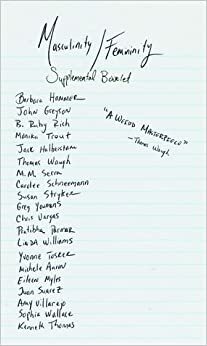 Masculinity / Femininity
Supplemental Booklet
Barbara Hammer
John Greyson
B. Ruby Rich
Monika Treut
Jack Halberstam
Thomas Waugh
M.M. Serra
Carolee Schneemann
Susan Stryker
Greg Youmans
Chris Vargas
Pratibha Parmar
Linda Williams
Yvonne
Michele Aaron
Eileen Myles
Juan Suarez
Amy Villarejo
Sophia Wallace
Kenneth Thomas
"A Weird Masterpiece"
- Thomas Waugh